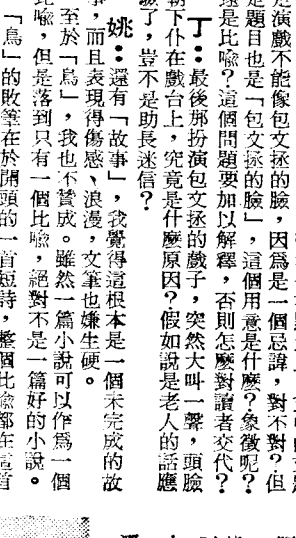 是演戲不能像包文拯的臉，因爲是一個忌諱，對不對？但
是題目也是「包文拯的臉」，這個用意是什麼？象徵呢？
還是比喩？這個問題要加以解釋，否則怎麼對讀者交代？
丁：最後那扮演包文拯的戲子，突然大叫一聲，頭臉
朝下仆在戲台上，究竟是什麼原因？假如說是老人的話應
驗了，豈不是助長迷信？
姚：還有「故事」，我覺得這根本是一個未完成的故
事，而且表現得傷感、浪漫，文筆也嫌生硬。
至於「鳥」，我也不贊成。雖然一篇小說可以作爲一個
比喩，但是落到只有一個比喩，絕對不是一篇好的小說。
「鳥」的敗筆在於開頭的一首短詩，整個比喩都在這首